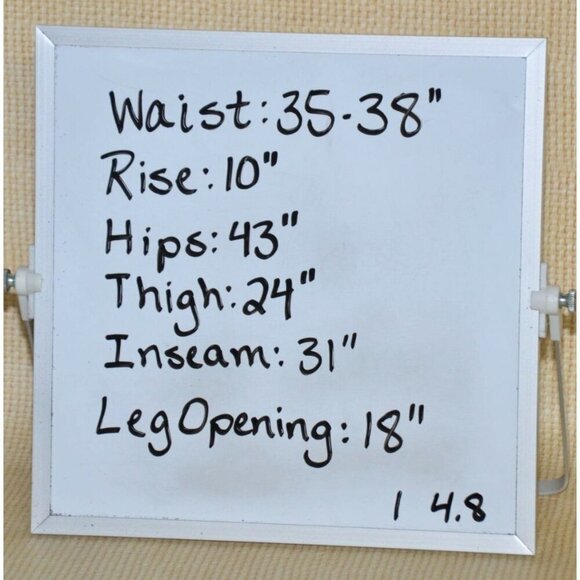 Waist: 35-38"
Rise: 10"
Hips: 43"
Thigh: 24"
Inseam: 31"
Leg Opening: 18"
1 4.8